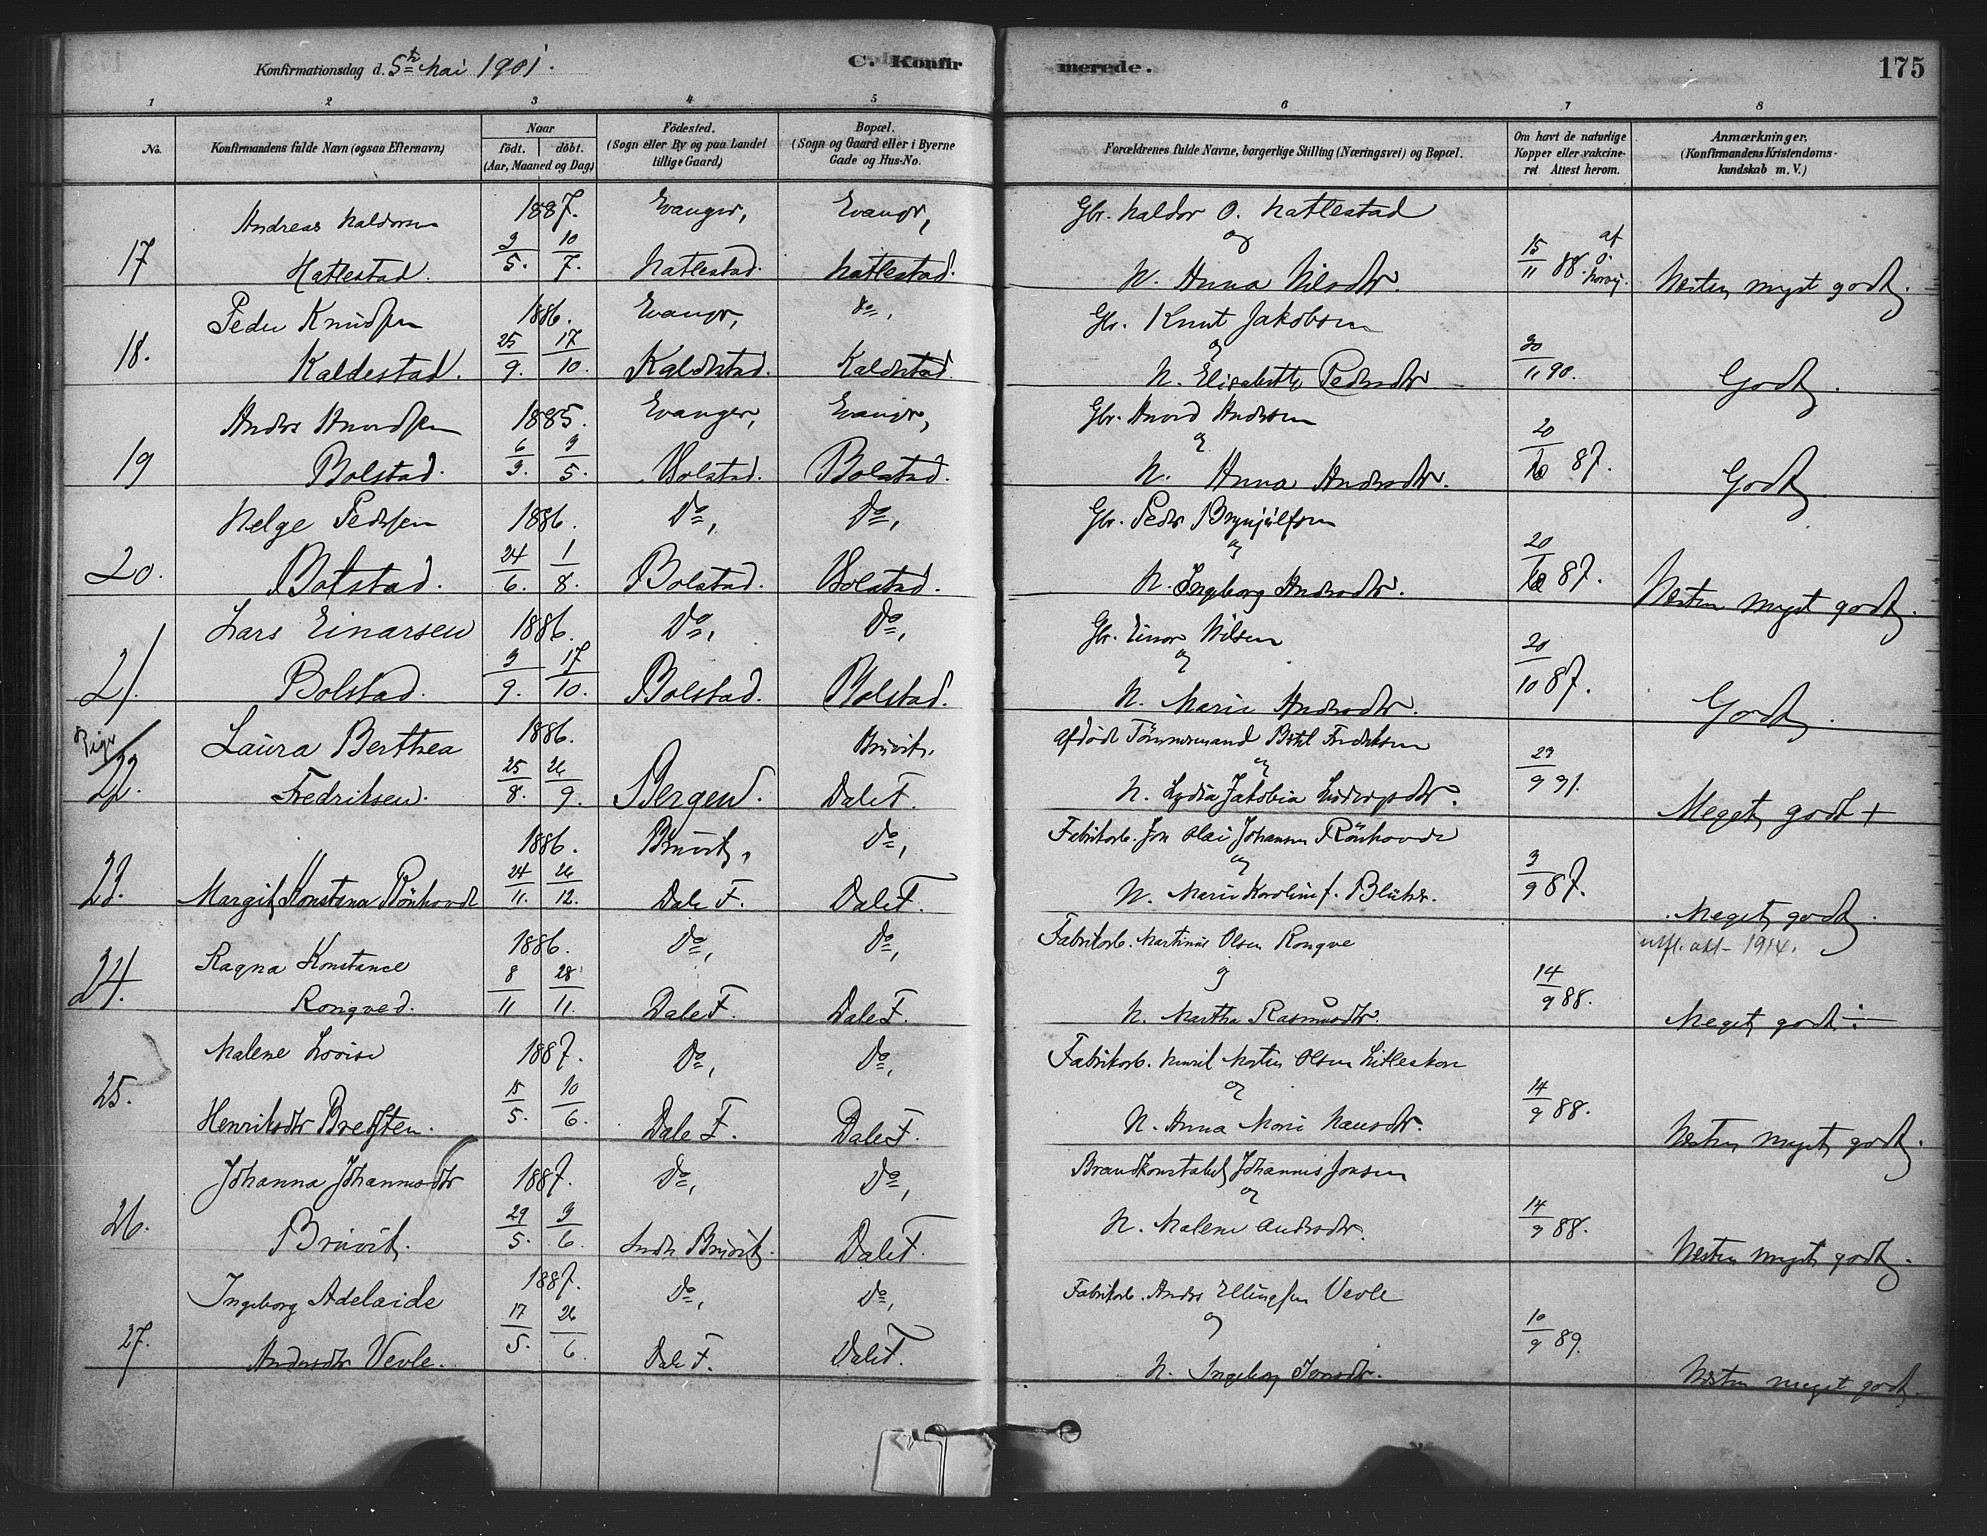 Konfirmationsdag d. 5te Mai 1901.
C. Konfirmerede.
175
1 2 3 4 5 6 7 8
No.
Konfirmandens fulde Navn (ogsaa Efternavn)
Naar
födt. döbt.
(Aar, Maaned og Dag)
Födested.
(Sogn eller By og paa Landet
tillige Gaard)
Bopæl.
(Sogn og Gaard eller i Byerne
Gade og Hus-No.
Forældrenes fulde Navne, borgerlige Stilling (Næringsvei) og Bopæl.
Om havt de naturlige
Kopper eller vakcine-
ret Attest herom.
Anmærkninger.
(Konfirmandens Kristendoms-
kundskab m. V.)
Andreas Haldorsen 1887. Evanger, Evangr, Gbr. Haldor O. Hatlestad
og
17 Hatlestad. 9/5. 10/7. Hatlestad. Hatlestad. H. Anna Nilsdtr. 15/11 88. af Næsten meget godt.
Peder Knudsen 1886. Evangr, Do, Gbr. Knut Jakobsen
og
18. Kaldestad. 25/9. 17/10. Kaldestad. Kaldestad. H. Elisabeth Pedersdtr 30/11 90. Godt.
Anders Knudsen 1885. Evanger, Evangr, Gbr. Andersen
og
19 Bolstad. 6/3. 3/5. Bolstad. Bolstad. H. Anna Andersdtr. 20/10 87. Godt.
Helge Pedersen 1886. Do, Do, Gbr. Peder Brynjulfsen
og
20. Bolstad. 24/6. 1/8. Bolstad. Bolstad. H. Ingeborg Andersdtr. 20/10 87. Næsten meget godt.
Lars Einarsen 1886. Do, Do, Gbr. Einar Nilsen
og
21. Bolstad. 9/9. 17/10. Bolstad. Bolstad. H. Marie Andersdtr. 20/10 87. Godt.
Piger
Laura Berthea 1886. Bruvik, Afdöde Tömmermand Fredriksen
og
22. Fredriksen. 25/8. 26/9. Bergen. Dale F. H. Lydia Jakobia Ludvigsdtr. 29/9 91. Meget godt +
1886. Bruvik, Do, Fabrikarb. Jon Olai Johansen Rönhovde
og
23. Margit Konstana Rönhovde 24/11. 26/12. Dale F. Dale F. H. Marie Karoline f. Blücher. 3/9 87. Meget godt.
Ragna Konstance 1886. Do, Do, Fabrikarb. Martinus Olsen Rongve utfl. att- 1914.
og
24. Rongved. 8/11 28/11. Dale F. Dale F. H. Martha Rasmusdtr. 14/9 88. Meget godt ÷
Malene Lovise 1887. Do, Do, Fabrikarb. Henrik Olsen
og
25. Henriksdtr Bredsten. 15/5. 10/6. Dale F. Dale F. H. Anna Marie Hansdtr. 14/9 88. Næsten meget godt.
Johanna Johannesdtr 1887. Do, Do, Brandkonstabel Johannes Jonsen
og
26. Bruvik. 29/5. 9/6. Indre Bruvik. Dale F. H. Malene Andersdtr. 14/9 88. Næsten meget godt.
Ingeborg Adelaide 1887. Do, Do, Fabrikarb. Anders Ellingsen Vevle
og
27. Andersdtr Vevle. 17/5. 26/6. Dale F. Dale F. H. Ingeborg Jonsdtr. 10/9 89. Næsten meget godt.